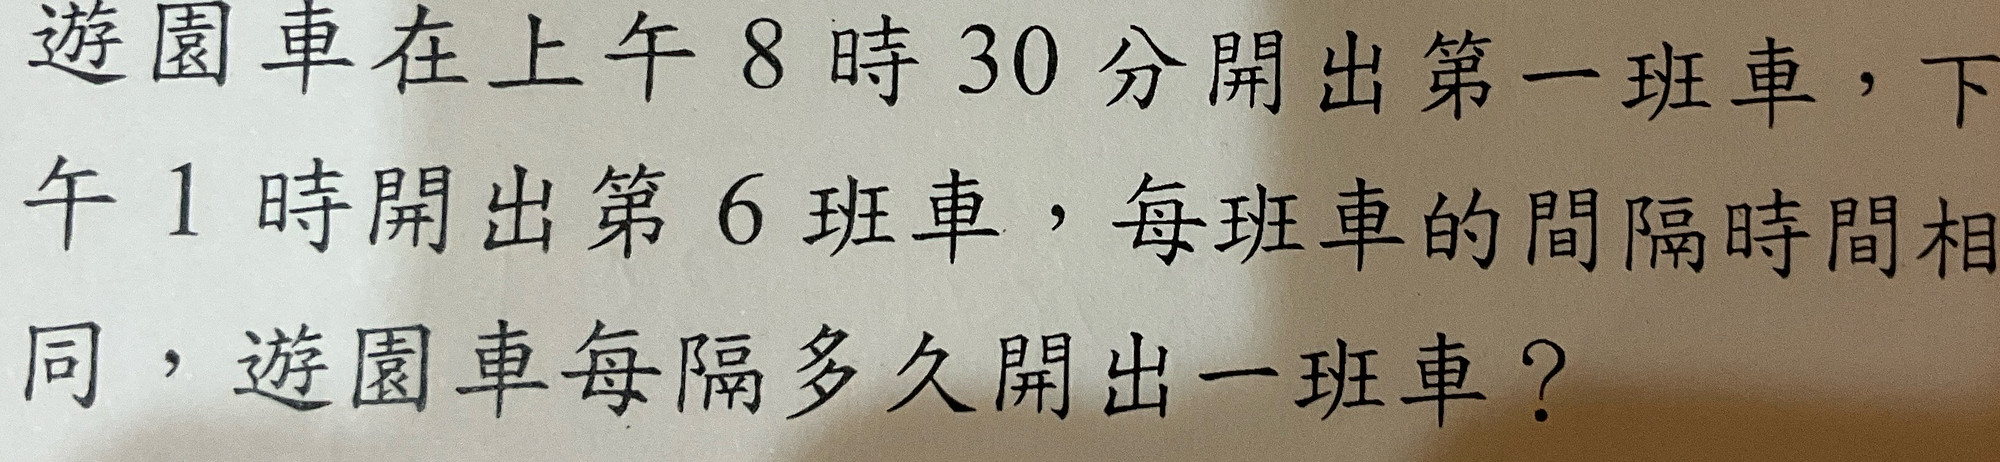 遊園車在上午 8 時 30 分開出第一班車，下
午 1 時開出第 6 班車，每班車的間隔時間相
同，遊園車每隔多久開出一班車？